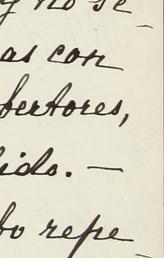 y no se_
as con
bertores,
ido. —
to repe_